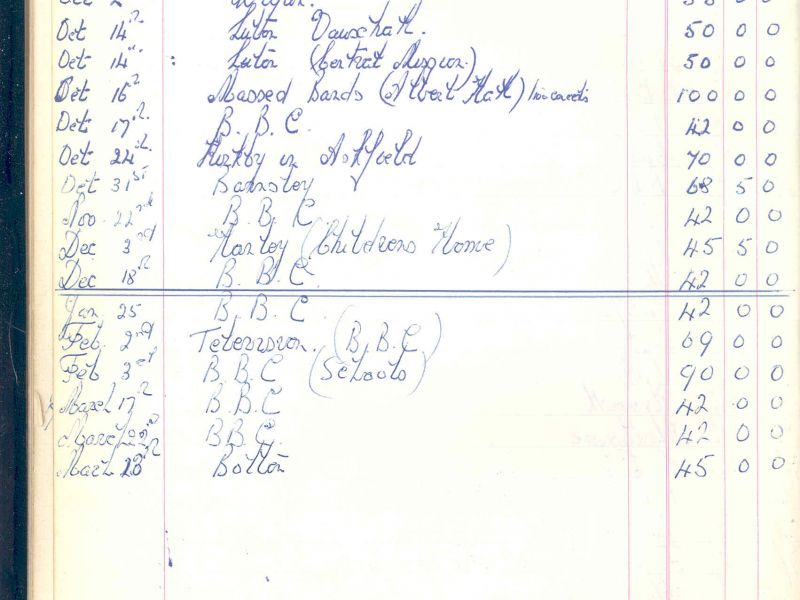 Oct 14th Luton Vauxhall. 50 0 0
Oct 14th : Luton (Central Mission) 50 0 0
Oct 16th Massed Bands (Albert Hall) two concerts 100 0 0
Oct 17th B.B.C. 42 0 0
Oct 24th Kirkby in Ashfield 70 0 0
Oct 31st Barnsley 68 5 0
Nov. 22nd B.B.C. 42 0 0
Dec 3rd (Childrens Home) 45 5 0
Dec 18th B.B.C. 42 0 0
Jan 25 B.B.C. 42 0 0
Feb. 2nd Television. (B.B.C) 69 0 0
Feb 3rd B.B.C (Schools) 90 0 0
March 17th B.B.C 42 0 0
March 22nd B.B.C. 42 0 0
March Bolton 45 0 0